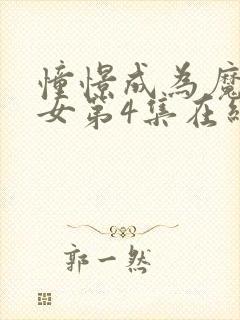 憧憬成为魔
女第4集在线
郭一然